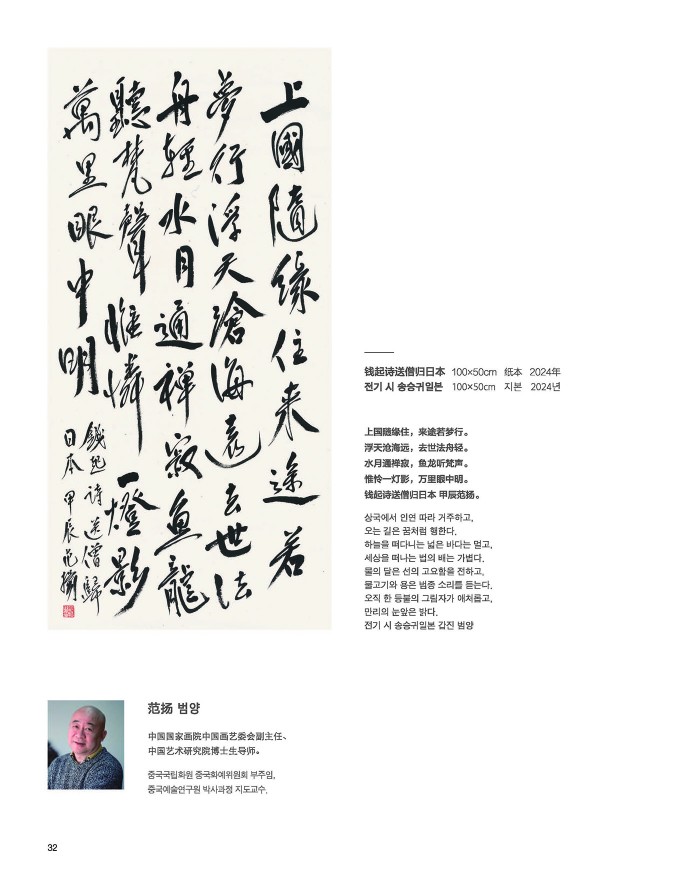 上國隨緣住来途若
夢行浮天滄海遠去世法
舟輕水月通禅寂魚龍
聽梵聲惟憐一燈影
萬里眼中明
錢起詩送僧歸
日本甲辰范揚
钱起诗送僧归日本 100×50cm 纸本 2024年
전기 시 송승귀일본 100×50cm 지본 2024년
上国随缘住，来途若梦行。
浮天沧海远，去世法舟轻。
水月通禅寂，鱼龙听梵声。
惟怜一灯影，万里眼中明。
钱起诗送僧归日本 甲辰范扬。
상국에서 인연 따라 거주하고,
오는 길은 꿈처럼 행한다.
하늘을 떠다니는 넓은 바다는 멀고,
세상을 떠나는 법의 배는 가볍다.
물의 달은 선의 고요함을 전하고,
물고기와 용은 범종 소리를 듣는다.
오직 한 등불의 그림자가 애처롭고,
만리의 눈앞은 밝다.
전기 시 송승귀일본 갑진 범양
范扬 범양
中国国家画院中国画艺委会副主任、
中国艺术研究院博士生导师。
중국국립화원 중국화예위원회 부주임,
중국예술연구원 박사과정 지도교수.
32